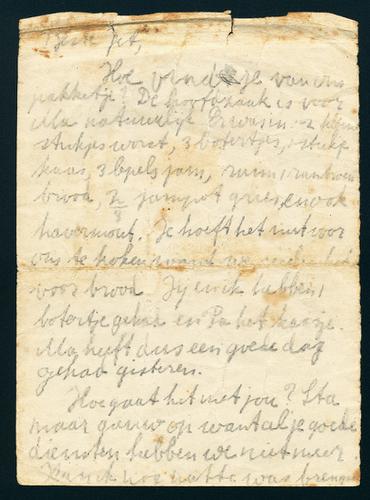 Beste Jet,
Hoe vind je van ons
pakketje? De hoofdzaak is voor
Ma natuurlijk Er was in 2 kleine
stukjes worst, 3 botertjes, 1 stukje
kaas, 3 lepels jam, ruim 1 rantsoen
brood, 2/3 jampot gries, en ook
havermout. Je hoeft het niet voor
ons te koken want we
voor brood. Jij en ik hebben 1
botertje gehad en Pa het kaasje.
Ma heeft dus een goede dag
gehad gisteren.
Hoe gaat hit met jou? Sta
maar gauw op want al je goede
diensten hebben we niet meer.
natte was brengen